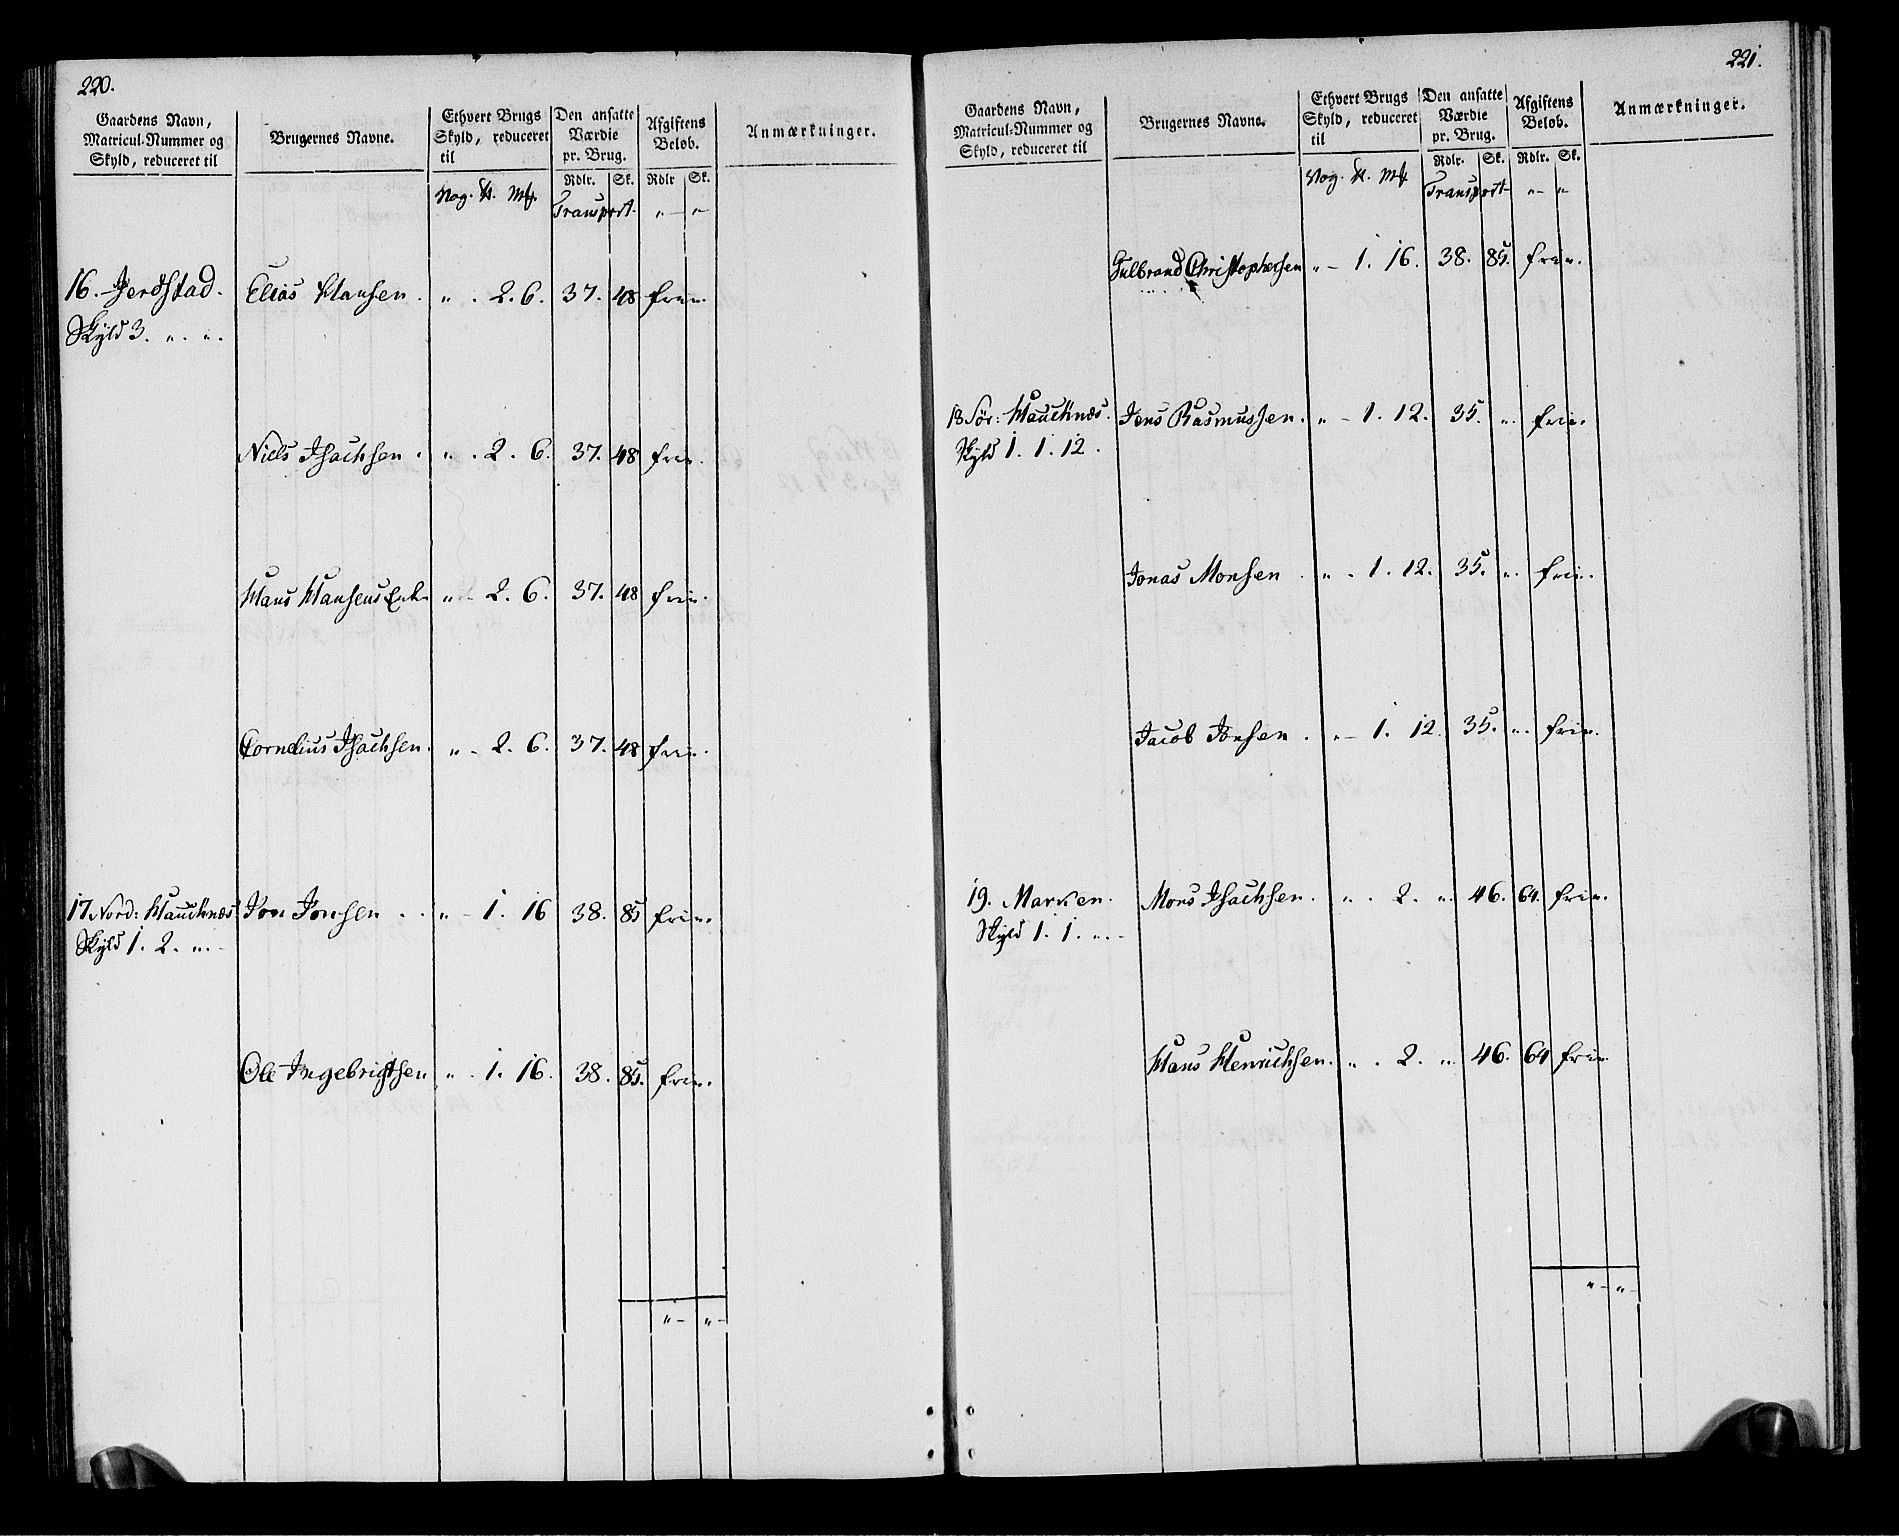 220.
Gaardens Navn, Matricul-Nummer og Skyld, reduceret til
Brugernes Navne.
Ethvert Brugs Skyld, reduceret til
Den ansatte Værdie pr. Brug.
Afgiftens Beløb.
Anmærkninger.
Rdlr. Sk. Rdlr Sk.
Vog. Mk.
Transport. " — "
16. Jerdstad. Elias Hansen . " . 2. 6. 37. 48 frie.
Skyld 3. " . " .
Niels Isachsen . " . 2. 6. 37. 48 frie.
Hans Hansens Enke " - 2. 6. 37. 48 frie.
Cornelius Isachsen. " - 2. 6. 37. 48 frie.
17 Nord: Hauchnæs Jon Jonsen . . " - 1. 16 38. 85 frie.
Skyld 1. 2. " . -
Ole Ingebrigtsen " . 1. 16. 38. 85. frie.
" - " -
221.
Gaardens Navn, Matricul-Nummer og Skyld, reduceret til
Brugernes Navne.
Ethvert Brugs Skyld, reduceret til
Den ansatte Værdie pr. Brug.
Afgiftens Beløb.
Anmærkninger.
Rdlr. Sk. Rdlr. Sk.
Vog. Mk.
Transport " — "
Gulbrand Christophersen " - 1. 16. 38. 85. frie.
18 Sør: Hauchnæs. Jens Rasmussen. " - 1. 12. 35. " . frie.
Skyld 1. 1. 12.
Jonas Monsen . " - 1. 12. 35. " . frie.
Jacob Jonsen . " - 1. 12. 35. " . frie.
19. Marken. Mons Isachsen. " . 2. " . 46. 64. frie.
Skyld 1. 1. " . -
Hans Henrichsen. " . 2. " . 46. 64 frie.
" - " -